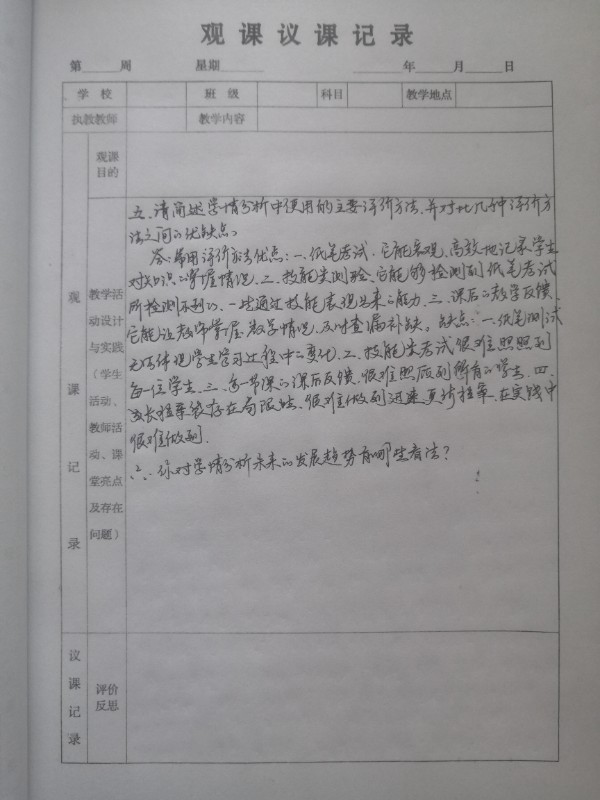 观课议课记录
第 周 星期 年 月 日
学校 班级 科目 教学地点
执教教师 教学内容
观课记录
观课目的
教学活动设计与实践（学生活动、教师活动、课堂亮点及存在问题）
五、请简述学情分析中使用的主要评价方法、并对比几种评价方
法之间的优缺点。
答:常用评价方法优点:一、纸笔考试.它能客观、高效地记录学生
对知识的掌握情况.二、技能类测验、它能够检测到纸笔考试
所检测不到的、一些通过技能表现出来的能力.三、课后的教学反馈、
它能让教师掌握教学情况,及时查漏补缺。缺点:一、纸笔测试
无法体现学生学习过程中的变化.二、技能类考试很难照顾到
每一位学生.三、每节课的课后反馈、很难照顾到所有的学生.四、
成长档案袋存在局限性、很难做到迅速更新档案、在实践中
很难做到.
六、你对学情分析未来的发展趋势有哪些看法?
议课记录
评价反思